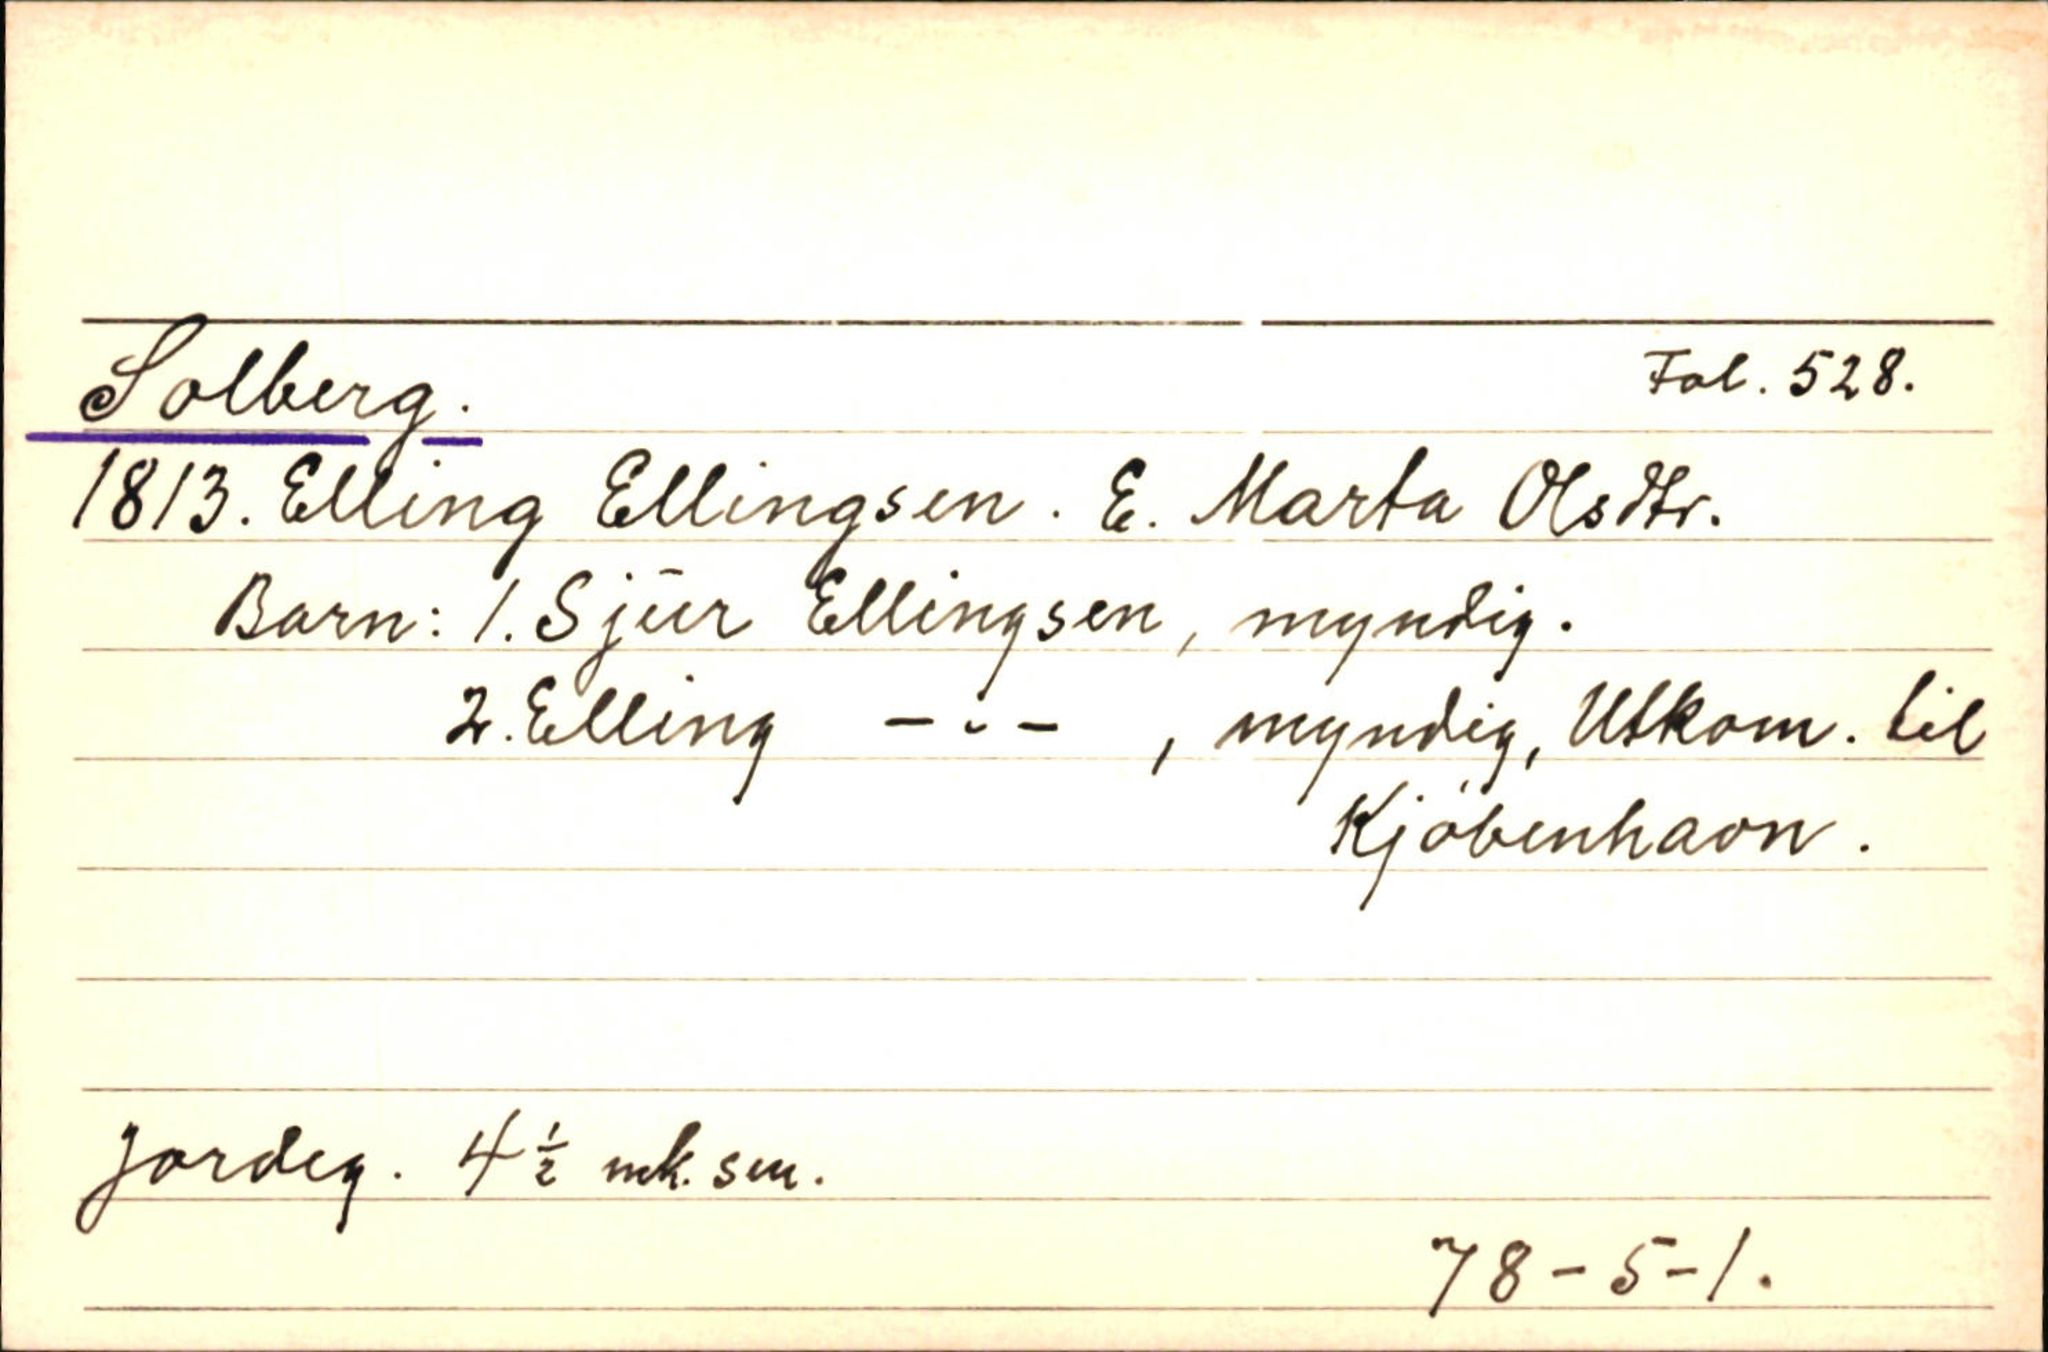 Solberg. Fol. 528.
1813. Elling Ellingsen. E. Marta Olsdtr.
Barn: 1. Sjur Ellingsen, myndig.
2. Elling -"-, myndig, Utkom. til
Kjöbenhavn.
Jordeg. 4 1/2 mk. sm.
78-5-1.